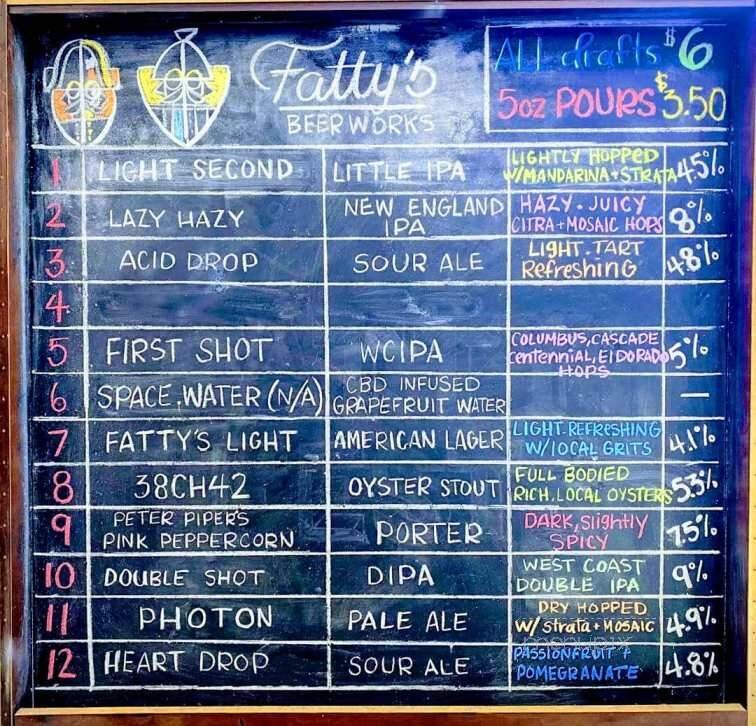 Fatty's
BEER WORKS
ALL drafts $6
5oz POURS $3.50
1 LIGHT SECOND LITTLE IPA LIGHTLY HOPPED
W/MANDARINA+STRATA 4.5%
2 LAZY HAZY NEW ENGLAND
IPA HAZY. JUICY
CITRA+MOSAIC HOPS 8%
3 ACID DROP SOUR ALE LIGHT. TART
Refreshing 4.8%
4
5 FIRST SHOT WCIPA COLUMBUS, CASCADE
Centennial, ElDORADO
HOPS 5%
6 SPACE WATER (N/A) CBD INFUSED
GRAPEFRUIT WATER —
7 FATTY'S LIGHT AMERICAN LAGER LIGHT. REFRESHING
W/LOCAL GRITS 4.1%
8 38CH42 OYSTER STOUT FULL BODIED
RICH. LOCAL OYSTERS 5.3%
9 PETER PIPER'S
PINK PEPPERCORN PORTER DARK, Slightly
SPICY 7.5%
10 DOUBLE SHOT DIPA WEST COAST
DOUBLE IPA 9%
11 PHOTON PALE ALE DRY HOPPED
W/ Strata+MOSAIC 4.9%
12 HEART DROP SOUR ALE PASSIONFRUIT +
POMEGRANATE 4.8%